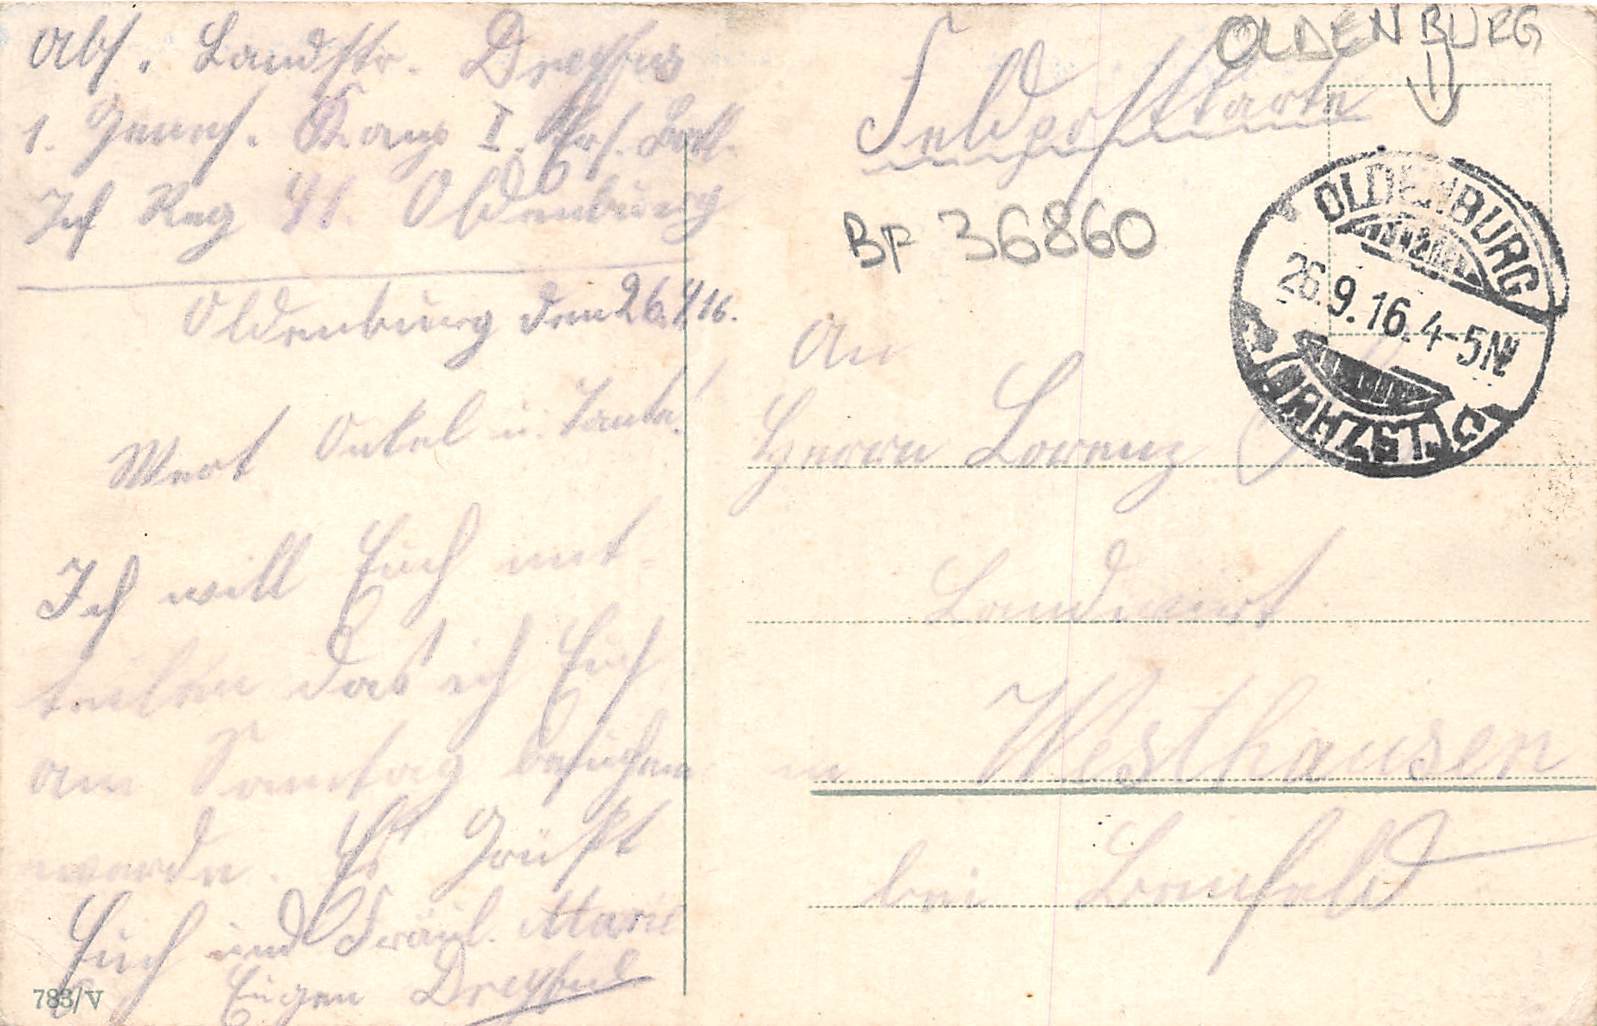 Abs. Landstr. Dreyfus
1. Genes. Komp I. Ers. Batl.
Inf Reg 91. Oldenburg
Oldenburg den 26.9.16.
Wert Onkel u. Tante!
Ich will Euch mit-
teilen das ich Euch
am Sonntag besuchen
werde. Es Grüßt
Euch und Fräul. Marie
Eugen Dreyfus
783/V
OLDENBURG
Feldpostkarte
BF 36860
OLDENBURG
26.9.16.4-5N
An
Herrn Lorenz
Landwirt
in Westhausen
bei Benfeld